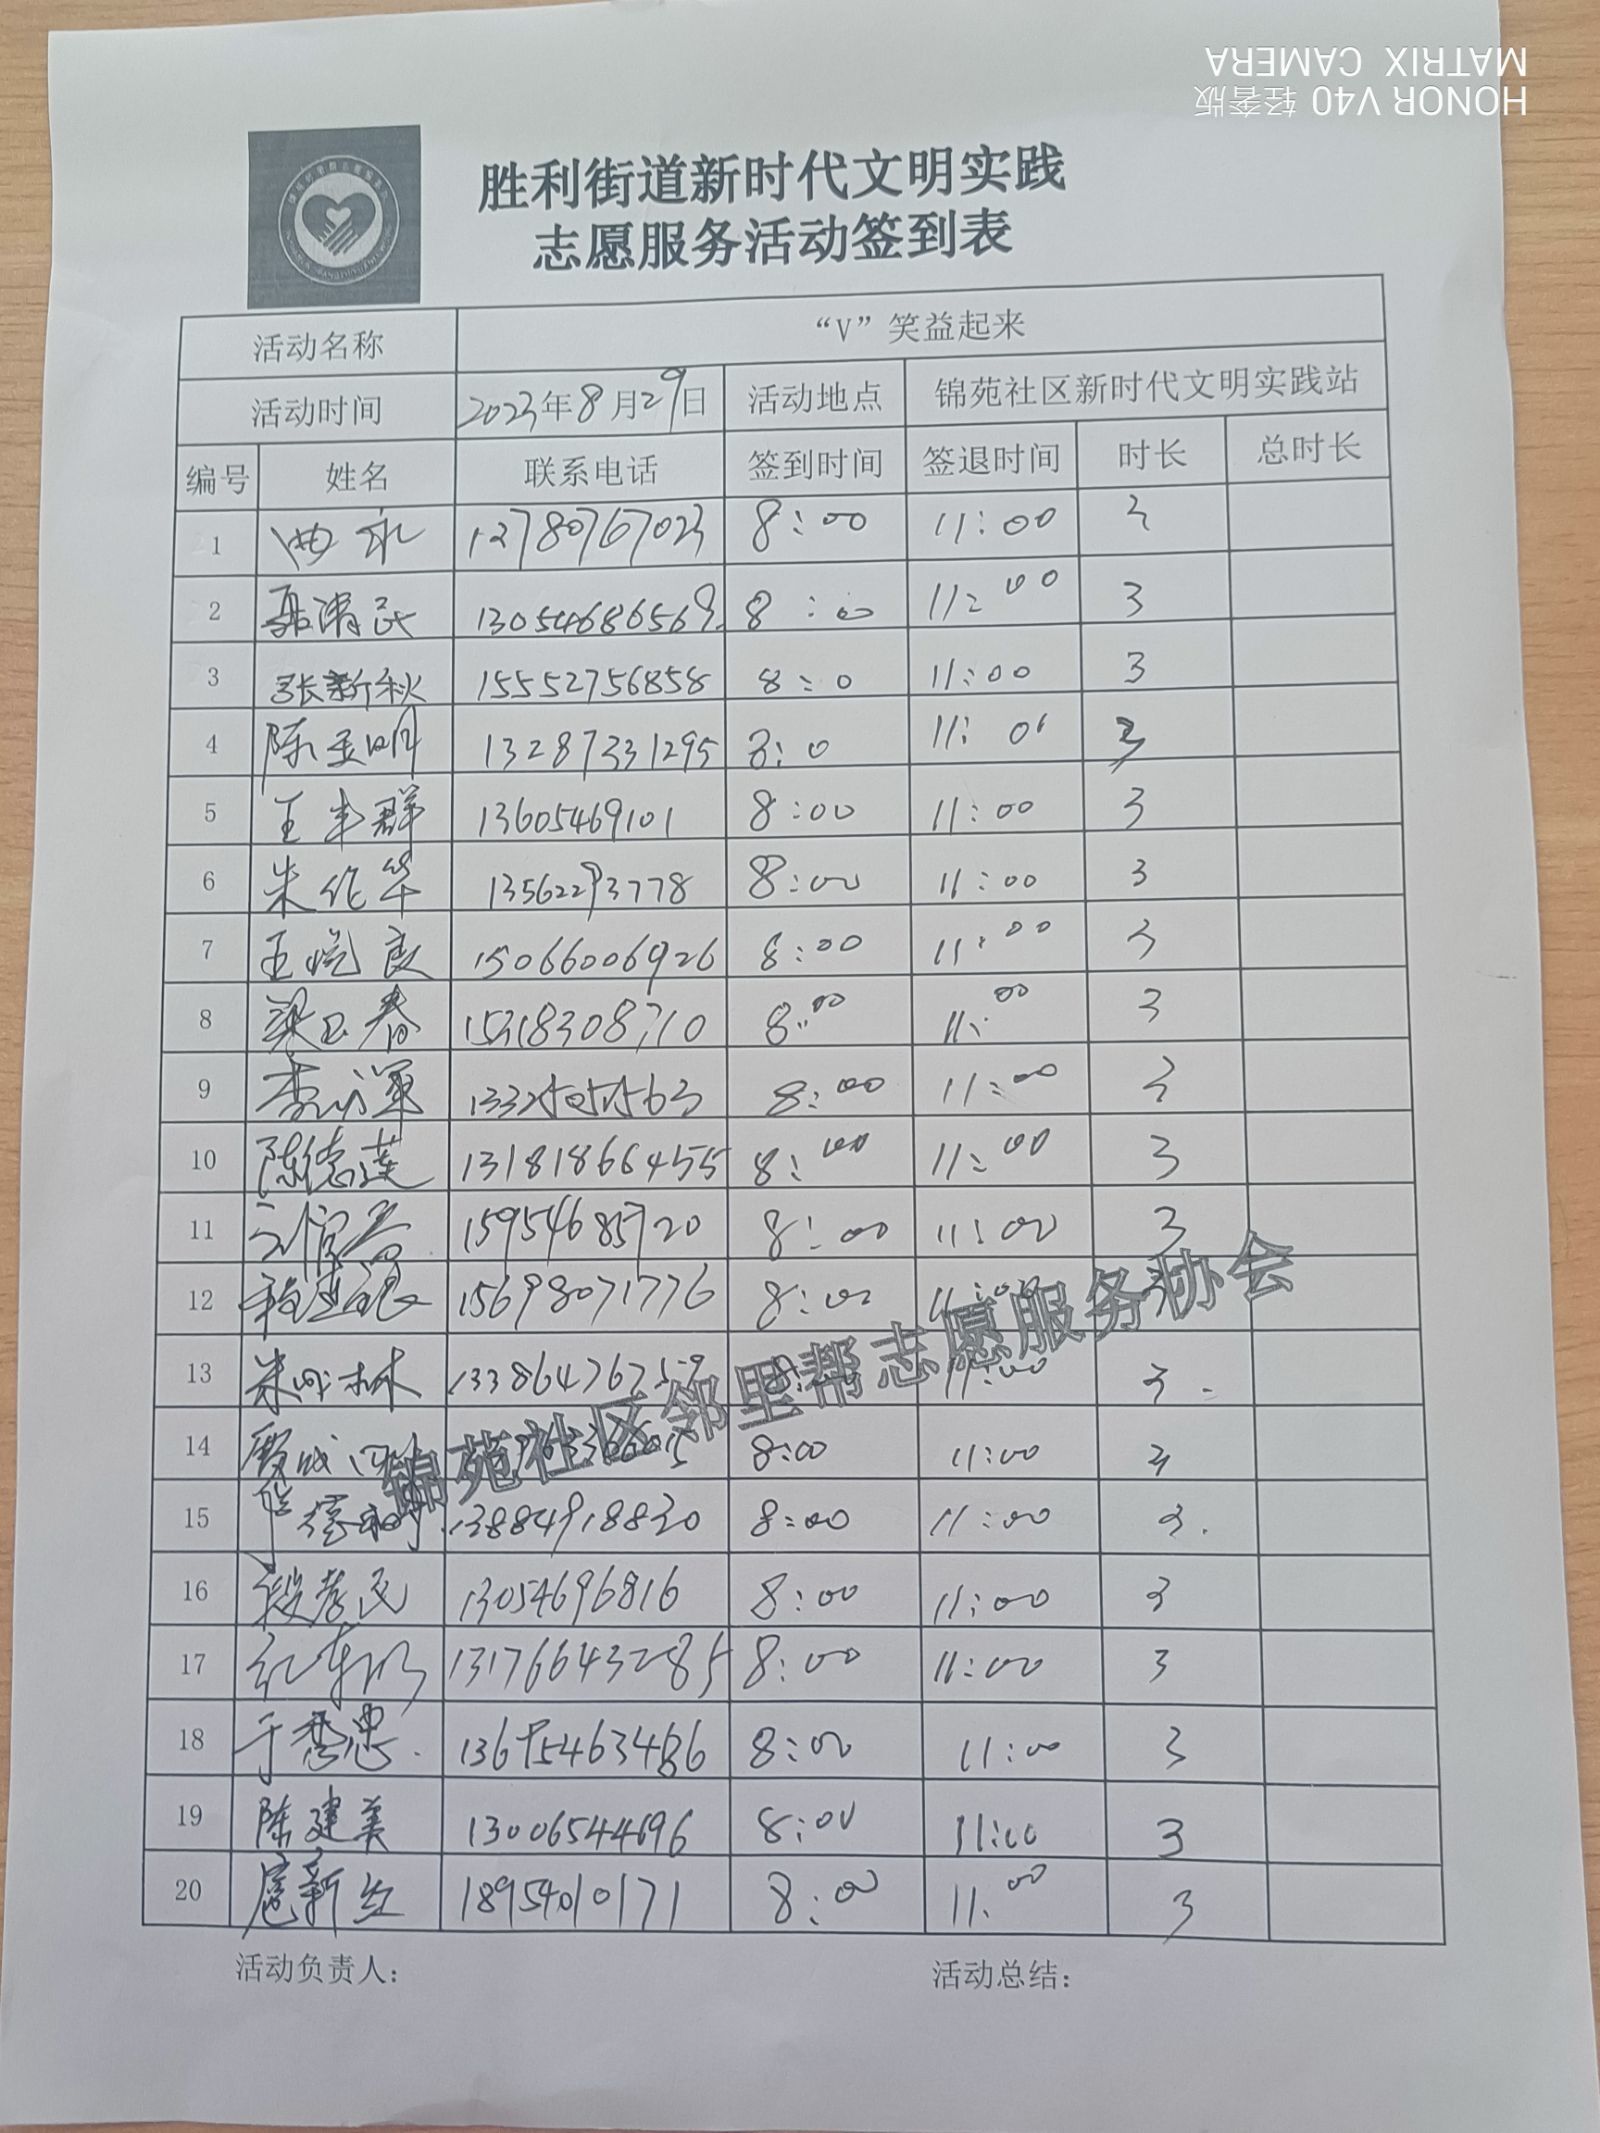 MATRIX CAMERA
HONOR V40 轻奢版
胜利街道新时代文明实践
志愿服务活动签到表
活动名称 “V”笑益起来
活动时间 2023年8月29日 活动地点 锦苑社区新时代文明实践站
编号 姓名 联系电话 签到时间 签退时间 时长 总时长
1 8:00 11:00 3
2 13054686569 8:00 11:00 3
3 张新秋 15552756858 8:0 11:00 3
4 13287331295 8:0 3
5 王丰群 13605469101 8:00 11:00 3
6 朱作华 13562293778 8:00 11:00 3
7 15066006926 8:00 11:00 3
8 梁玉春 15318308710 8:00 11:00 3
9 8:00 11:00 3
10 陈德莲 13181866455 8:00 11:00 3
11 15954685920 8:00 11:00 3
12 15698071776 8:00 11:00 3
13 11:00 3
14 8:00 11:00 3
15 13884918830 8:00 11:00 3
16 段孝民 13054696816 8:00 11:00 3
17 13176643285 8:00 11:00 3
18 8:00 11:00 3
19 陈建美 13006544696 8:00 11:00 3
20 扈新红 18954010171 8:00 11:00 3
锦苑社区邻里帮志愿服务协会
活动负责人: 活动总结: